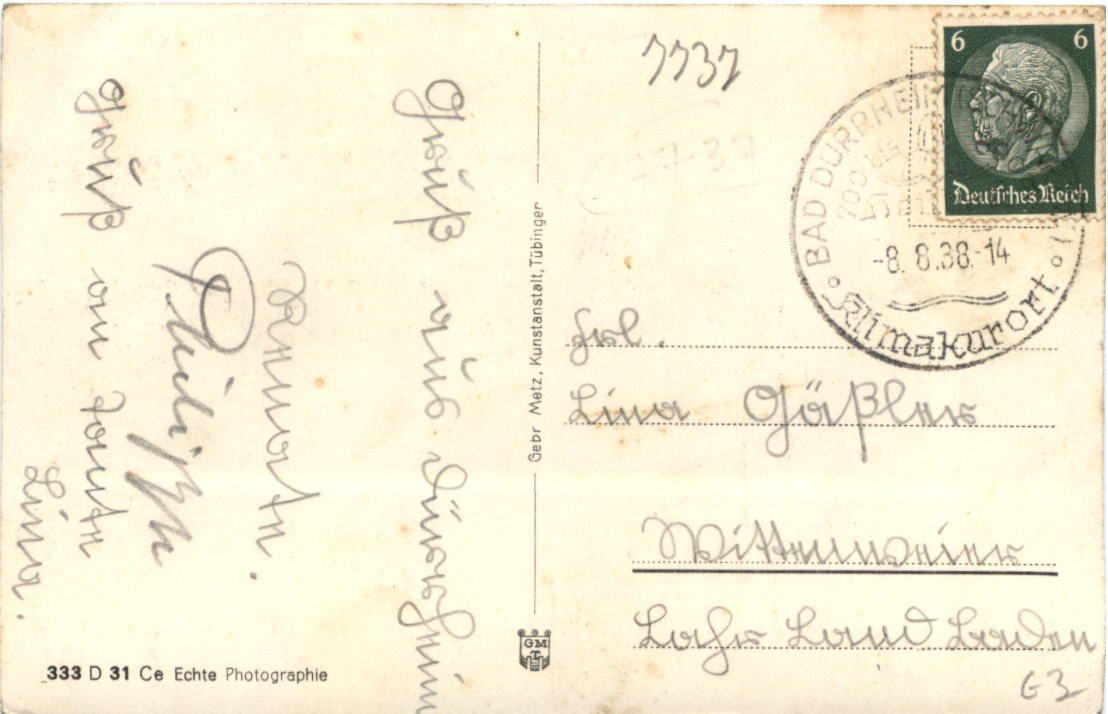 Gruß aus Dürrheim
Renate.
gruß an Tante
Lina.
333 D 31 Ce Echte Photographie
Gebr Metz, Kunstanstalt, Tübingen
GM
T
7737
6 6
Deutsches Reich
BAD DÜRRHEIM
-8. 8.38.-14
Klimakurort
Frl.
Lina Gäßler
Wittenweier
Lahr Land Baden
G3